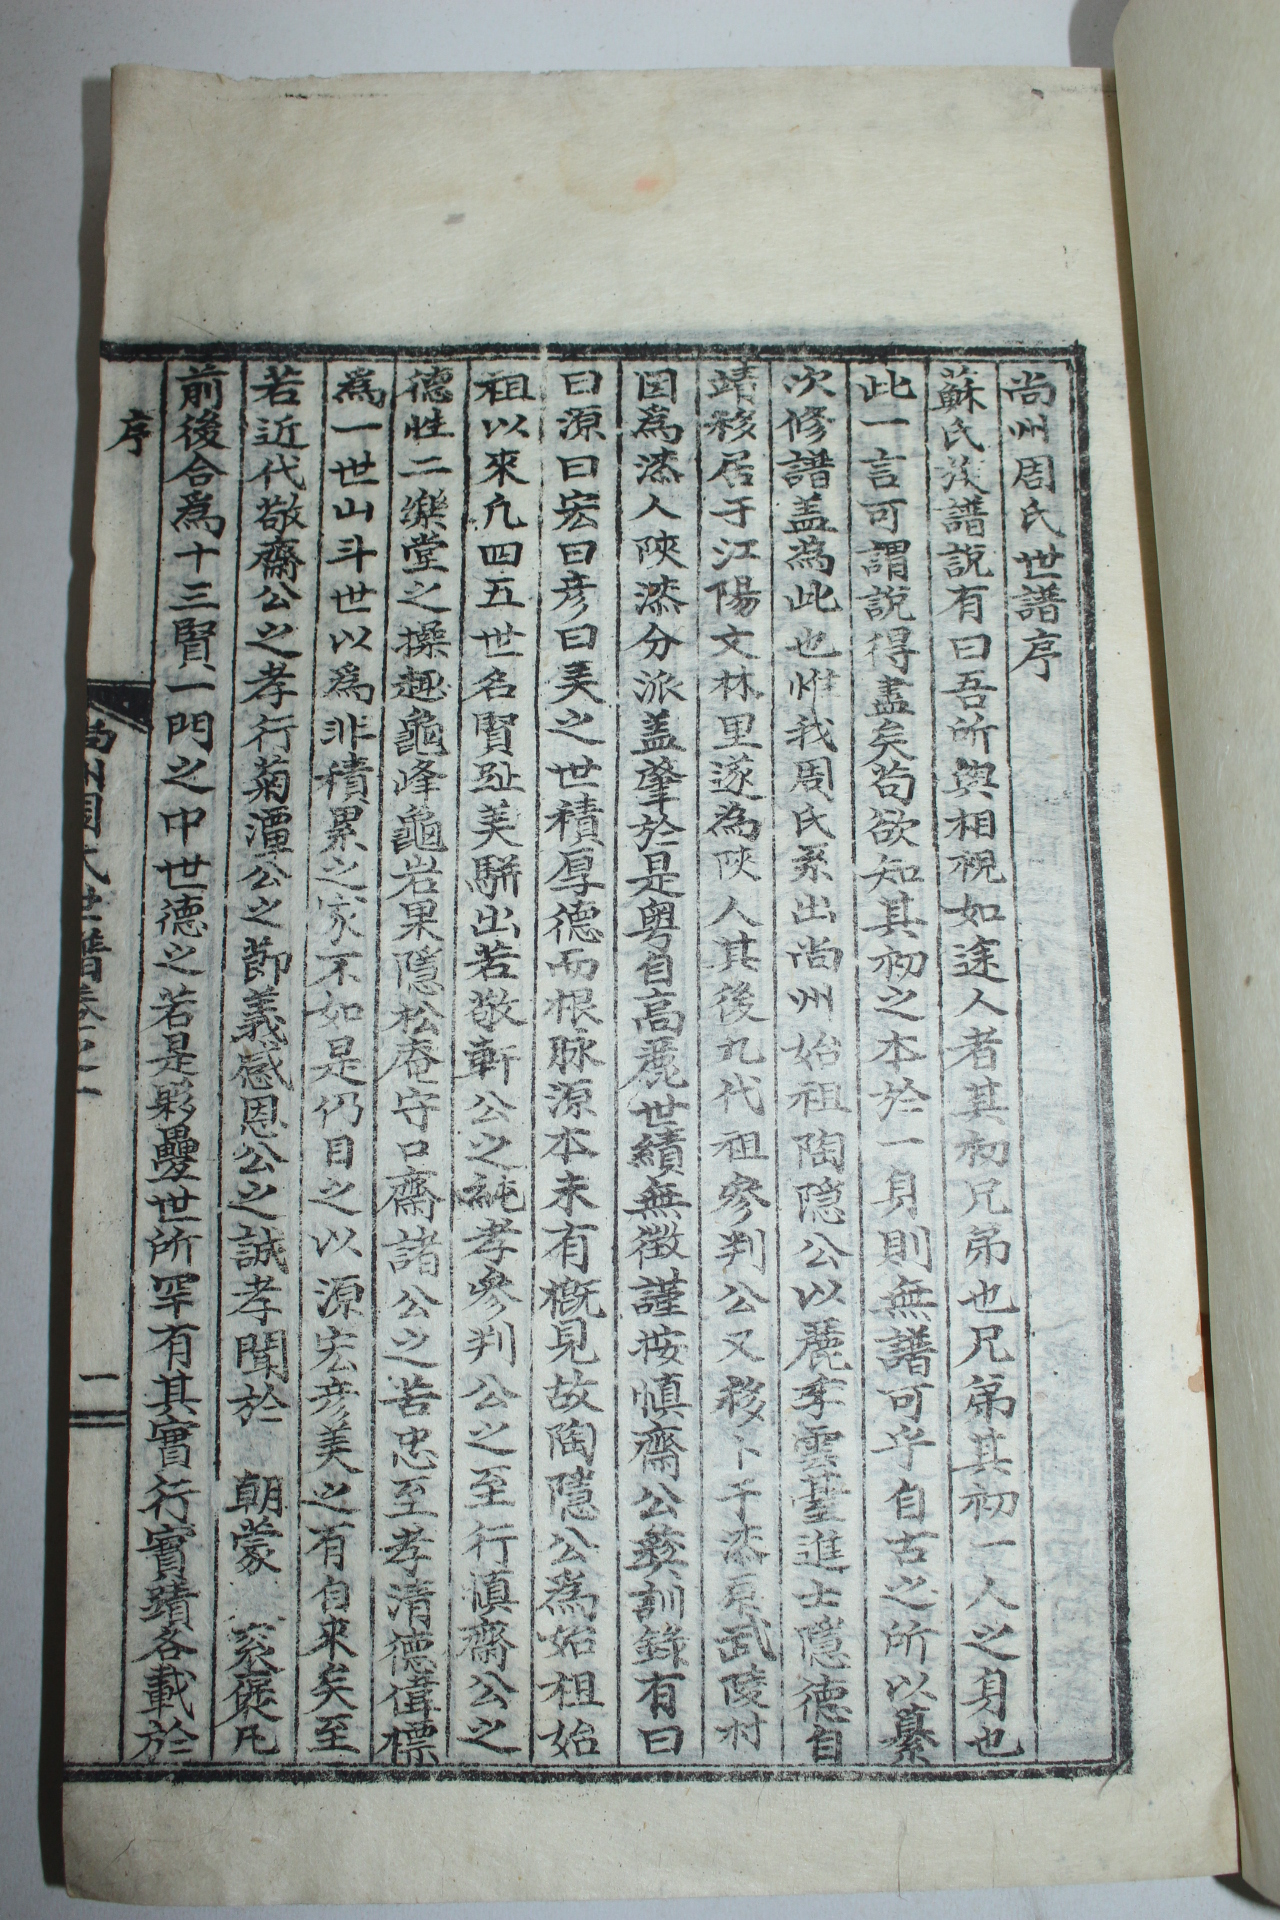 尚州周氏世譜序
蘇氏族譜說有曰吾所與相視如途人者其初兄弟也兄弟其初一人之身也
此一言可謂說得盡矣苟欲知其初之本於一身則無譜可乎自古之所以纂
次修譜盖為此也惟我周氏系出尚州始祖陶隱公以麗季雲臺進士隱德自
靖移居于江陽文林里遂為陜人其後九代祖參判公又移卜于漆原武陵村
因爲漆人陜漆分派盖肇於是粤自高麗世績無徵謹按愼齋公彛訓錄有曰
曰源曰宏曰彦曰美之世積厚德而根脉源本未有槪見故陶隱公爲始祖始
祖以來凢四五世名賢趾美駢出若敬軒公之純孝參判公之至行愼齋公之
德性二樂堂之操趣龜峰龜岩果隱松庵守口齋諸公之苦忠至孝清德偉標
爲一世山斗世以爲非積累之家不如是仍目之以源宏彦美之有自來矣至
若近代敬齋公之孝行菊潭公之節義感恩公之誠孝聞於　朝蒙　㐮褒凢
前後合爲十三賢一門之中世德之若是夥疊世所罕有其實行實蹟各載於
序
尚州周氏世譜卷之一
一